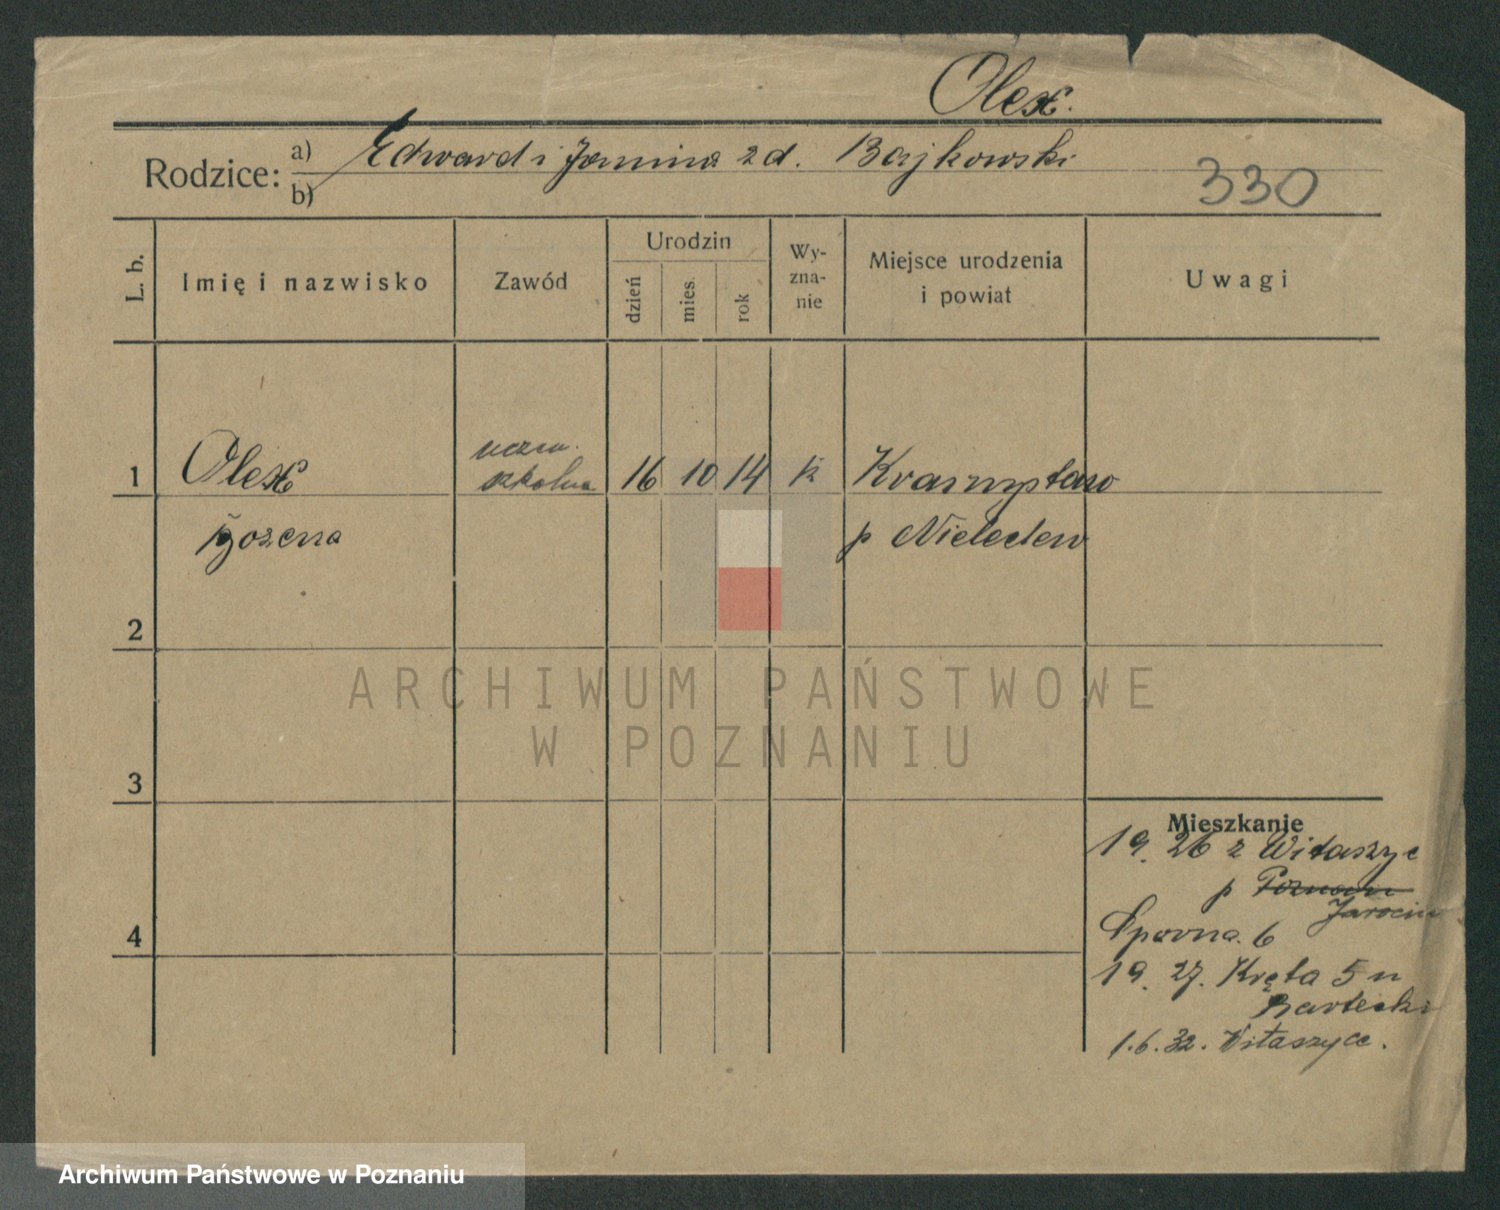 Olex.
Rodzice:
a) Edward i Janina z d. Bajkowski
b)
330
L. b.
Imię i nazwisko
Zawód
Urodzin
dzień
mies.
rok
Wy-
zna-
nie
Miejsce urodzenia
i powiat
Uwagi
1
Olex
uczen.
szkolna
16
10
14
k
Krasnystaw
Bożena
p
2
3
4
Mieszkanie
19. 26 z Witaszyc
p Poznań
Jarocin
6
19. 27. Kręta 5 u
Bartecki
1.6.32. Witaszyce.
ARCHIWUM PAŃSTWOWE
W POZNANIU
Archiwum Państwowe w Poznaniu